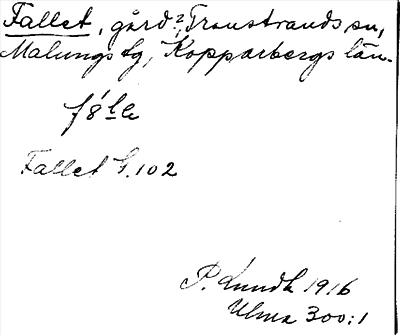 Fallet, gård?, Transtrands sn,
Malungs tg, Kopparbergs län.
Fallet S. 102
P. Lundh 1916
Ulma 300:1